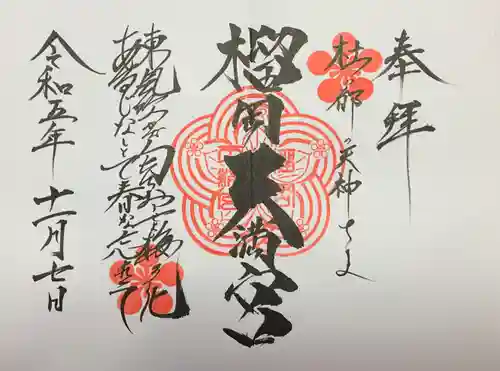 奉拝
杜の都の天神さま
榴岡天満宮
東風吹かば
梅の花
あるじなしとて春な忘れそ
令和五年十一月七日